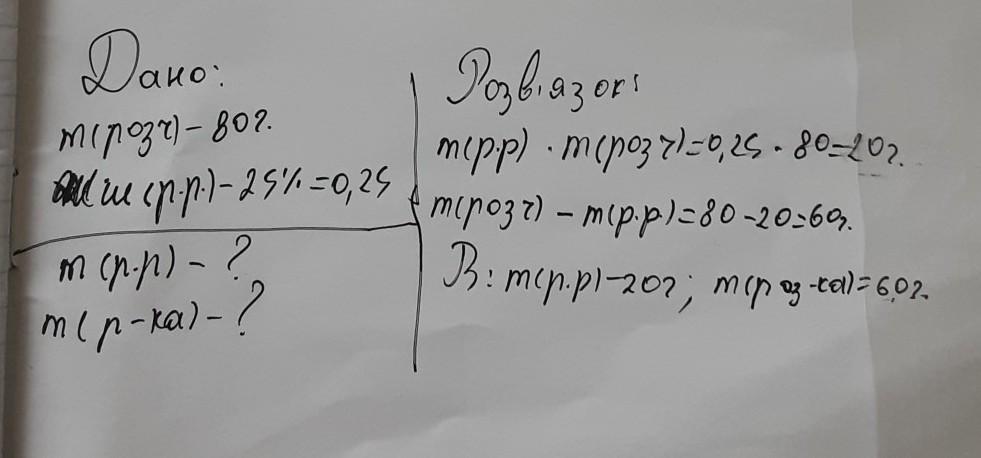 Дано:
m(розч)-80г.
ш(р.р.)-25%=0,25
m(р.р)-?
m(р-ка)-?
Розв,язок:
m(р.р)·m(розч)=0,25·80=20г.
m(розч)-m(р.р.)=80-20=60г.
В: m(р.р)-20г; m(роз-ка)=60г.